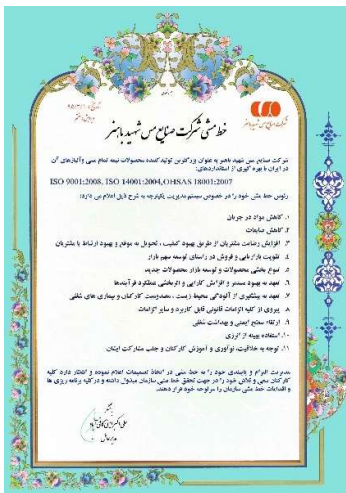 شرکت صنایع مس شهید باهنر
خط مشی شرکت صنایع مس شهید باهنر
شرکت صنایع مس شهید باهنر به عنوان بزرگترین تولید کننده محصولات نیمه تمام مسی و آلیاژهای آن
در ایران با بهره گیری از استانداردهای:
ISO 9001:2008, ISO 14001:2004,OHSAS 18001:2007
رئوس خط مشی خود را در خصوص سیستم مدیریت یکپارچه به شرح ذیل اعلام می دارد:
۱. کاهش مواد در جریان
۲. کاهش ضایعات
۳. افزایش رضایت مشتریان از طریق بهبود کیفیت ، تحویل به موقع و بهبود ارتباط با مشتریان
۴. تقویت بازاریابی و فروش در راستای توسعه سهم بازار
۵. تنوع بخشی محصولات و توسعه بازار محصولات جدید
۶. تعهد به بهبود مستمر و افزایش کارایی و اثربخشی عملکرد فرآیندها
۷. تعهد به پیشگیری از آلودگی محیط زیست ، مصدومیت کارکنان و بیماری های شغلی
۸. پیروی از کلیه الزامات قانونی قابل کاربرد و سایر الزامات
۹. ارتقاء سطح ایمنی و بهداشت شغلی
۱۰. استفاده بهینه از انرژی
۱۱. توجه به خلاقیت، نوآوری و آموزش کارکنان و جلب مشارکت ایشان.
مدیریت التزام و پایبندی خود را به خط مشی در اتخاذ تصمیمات اعلام نموده و انتظار دارد کلیه
کارکنان سعی و تلاش خود را در جهت تحقق خط مشی سازمان مبذول داشته و در کلیه برنامه ریزی ها
و اقدامات خط مشی سازمان را سرلوحه خود قرار دهند.
مدیرعامل